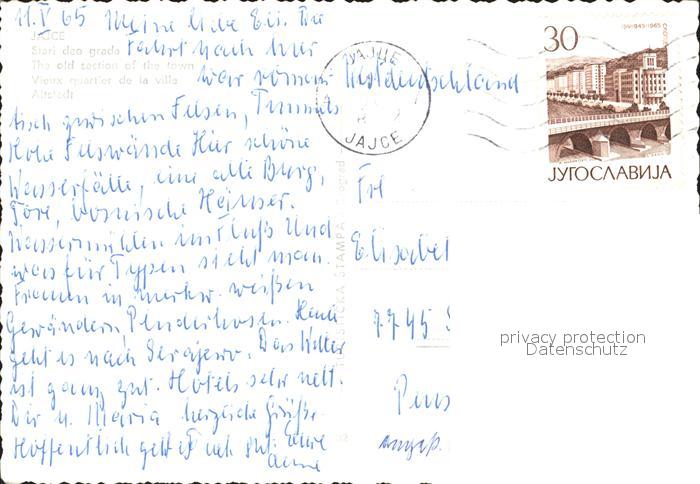 11.V 65 Meine liebe Eli. Die
JAJCE
Stari deo grada
Fahrt nach hier
The old section of the town
Vieux quartier de la ville
war roman
Altstadt
tisch zwischen Felsen, Tunnels
Hohe Felswände Hier schöne
Wasserfälle, eine alte Burg,
Tore, bosnische Häuser.
Wassermühlen im Fluß Und
was für Typen sieht man.
Frauen in merkw. weißen
Gewändern Pluderhosen. Heute
geht es nach Serajewo. Das Wetter
ist ganz gut. Hotels sehr nett.
Dir u. Maria herzliche Grüße.
Hoffentlich geht es Euch gut. Eure
Anne
TURISTIČKA ŠTAMPA Beograd
JAJCE
JAJCE
30
1945-1965
ЈУГОСЛАВИЈА
Westdeutschland
Frl
Elisabet
7745
Pens
privacy protection
Datenschutz